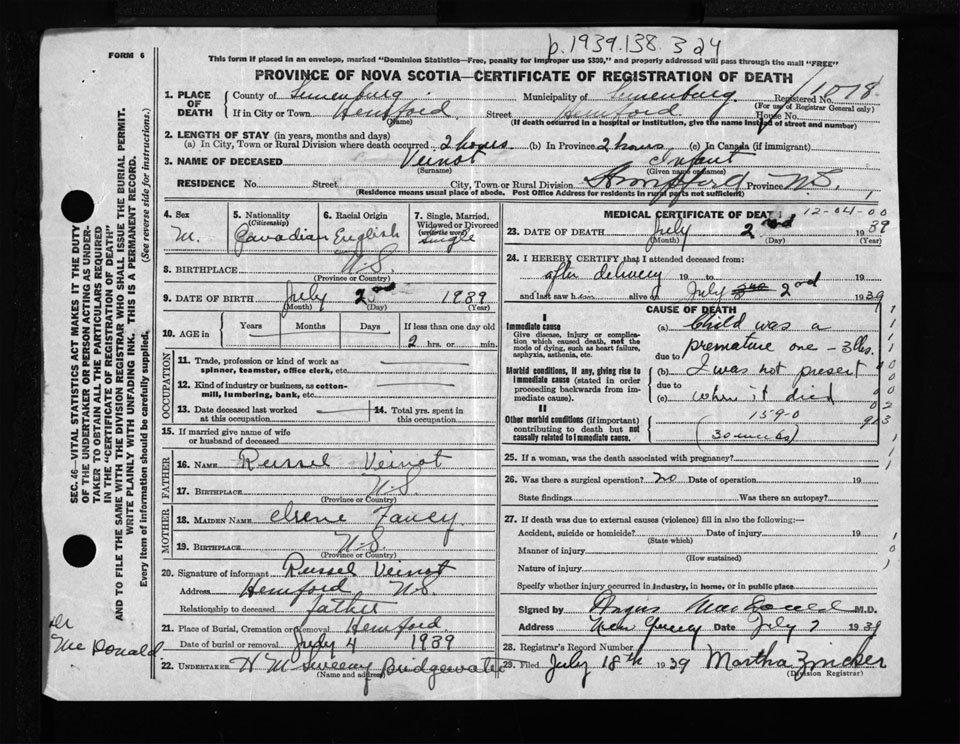 p.1939.138.324
FORM 6
This form if placed in an envelope, marked "Dominion Statistics—Free, penalty for improper use $300," and properly addressed will pass through the mail "FREE"
PROVINCE OF NOVA SCOTIA—CERTIFICATE OF REGISTRATION OF DEATH
1. PLACE OF DEATH { County of Lunenburg Municipality of Lunenburg Registered No. 1078
(For use of Registrar General only)
If in City or Town Hemford Street Hemford House No.
(Name) (If death occurred in a hospital or institution, give the name instead of street and number)
2. LENGTH OF STAY (in years, months and days)
(a) In City, Town or Rural Division where death occurred 2 hours (b) In Province 2 hours (c) In Canada (if immigrant)
3. NAME OF DECEASED Veinot Infant
(Surname) (Given name or names)
RESIDENCE No. Street City, Town or Rural Division Hemford Province N.S.
(Residence means usual place of abode. Post Office Address for residents in rural parts not sufficient)
4. Sex M.
5. Nationality (Citizenship) Canadian
6. Racial Origin English
7. Single, Married, Widowed or Divorced (write the word) Single
8. BIRTHPLACE N.S.
(Province or Country)
9. DATE OF BIRTH July 2 1939
(Month) (Day) (Year)
10. AGE in { Years Months Days If less than one day old
2 hrs. or min.
OCCUPATION
11. Trade, profession or kind of work as spinner, teamster, office clerk, etc.
12. Kind of industry or business, as cotton-mill, lumbering, bank, etc.
13. Date deceased last worked at this occupation
14. Total yrs. spent in this occupation
15. If married give name of wife or husband of deceased
FATHER
16. NAME Russel Veinot
17. BIRTHPLACE N.S.
(Province or Country)
MOTHER
18. MAIDEN NAME Irene Fancy
19. BIRTHPLACE N.S.
(Province or Country)
20. Signature of informant Russel Veinot
Address Hemford N.S.
Relationship to deceased father
21. Place of Burial, Cremation or Removal Hemford
Date of burial or removal July 4 1939
22. UNDERTAKER H M Sweeny Bridgewater
(Name and address)
MEDICAL CERTIFICATE OF DEATH 12-04-00
23. DATE OF DEATH July 2nd 1939
(Month) (Day) (Year)
24. I HEREBY CERTIFY that I attended deceased from:
after delivery 19 to
and last saw him alive on July 2nd 1939
CAUSE OF DEATH
I
Immediate cause
Give disease, injury or complication which caused death, not the mode of dying, such as heart failure, asphyxia, asthenia, etc.
(a) Child was a
premature one - 3 lbs.
due to
Morbid conditions, if any, giving rise to immediate cause (stated in order proceeding backwards from immediate cause).
(b) I was not present
due to
(c) when it died
II
Other morbid conditions (if important) contributing to death but not causally related to immediate cause.
159-0
(30 weeks)
25. If a woman, was the death associated with pregnancy?
26. Was there a surgical operation? no Date of operation 19
State findings Was there an autopsy?
27. If death was due to external causes (violence) fill in also the following:—
Accident, suicide or homicide? Date of injury 19
(State which)
Manner of injury
(How sustained)
Nature of injury
Specify whether injury occurred in industry, in home, or in public place
Signed by Angus MacDonald M.D.
Address Date July 7 1939
28. Registrar's Record Number
29. Filed July 18th 1939 Martha Zwicker
(Division Registrar)
SEC. 46—VITAL STATISTICS ACT MAKES IT THE DUTY
OF THE UNDERTAKER OR PERSON ACTING AS UNDER-
TAKER TO OBTAIN ALL THE PARTICULARS REQUIRED
IN THE "CERTIFICATE OF REGISTRATION OF DEATH"
AND TO FILE THE SAME WITH THE DIVISION REGISTRAR WHO SHALL ISSUE THE BURIAL PERMIT.
WRITE PLAINLY WITH UNFADING INK. THIS IS A PERMANENT RECORD.
Every item of information should be carefully supplied. (See reverse side for instructions.)
Mc Donald